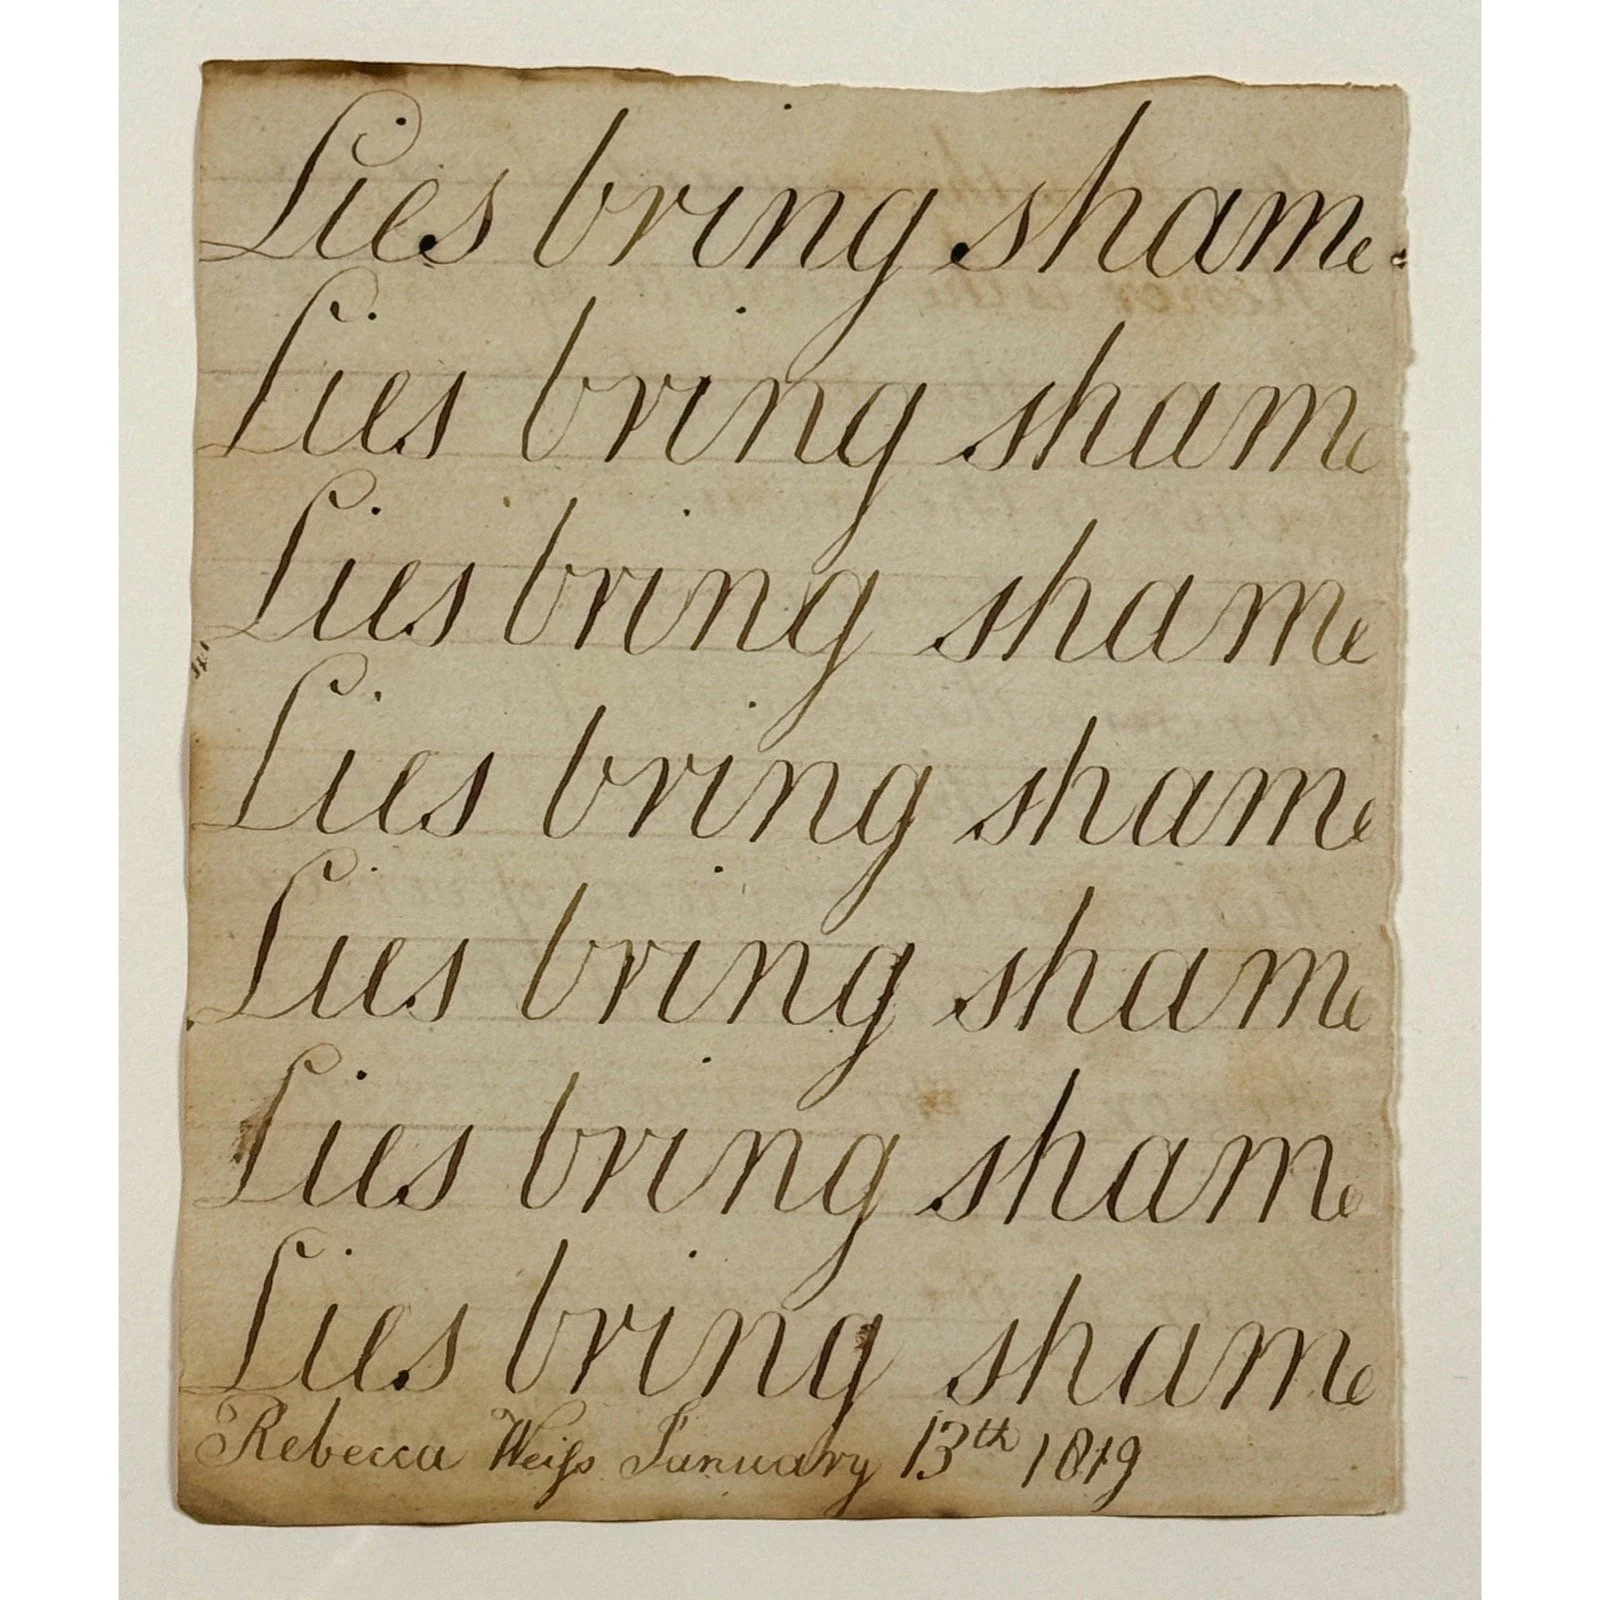 Lies bring shame.
Lies bring shame
Lies bring shame
Lies bring shame
Lies bring shame
Lies bring shame
Lies bring shame
Rebecca Weiſs January 13th 1819